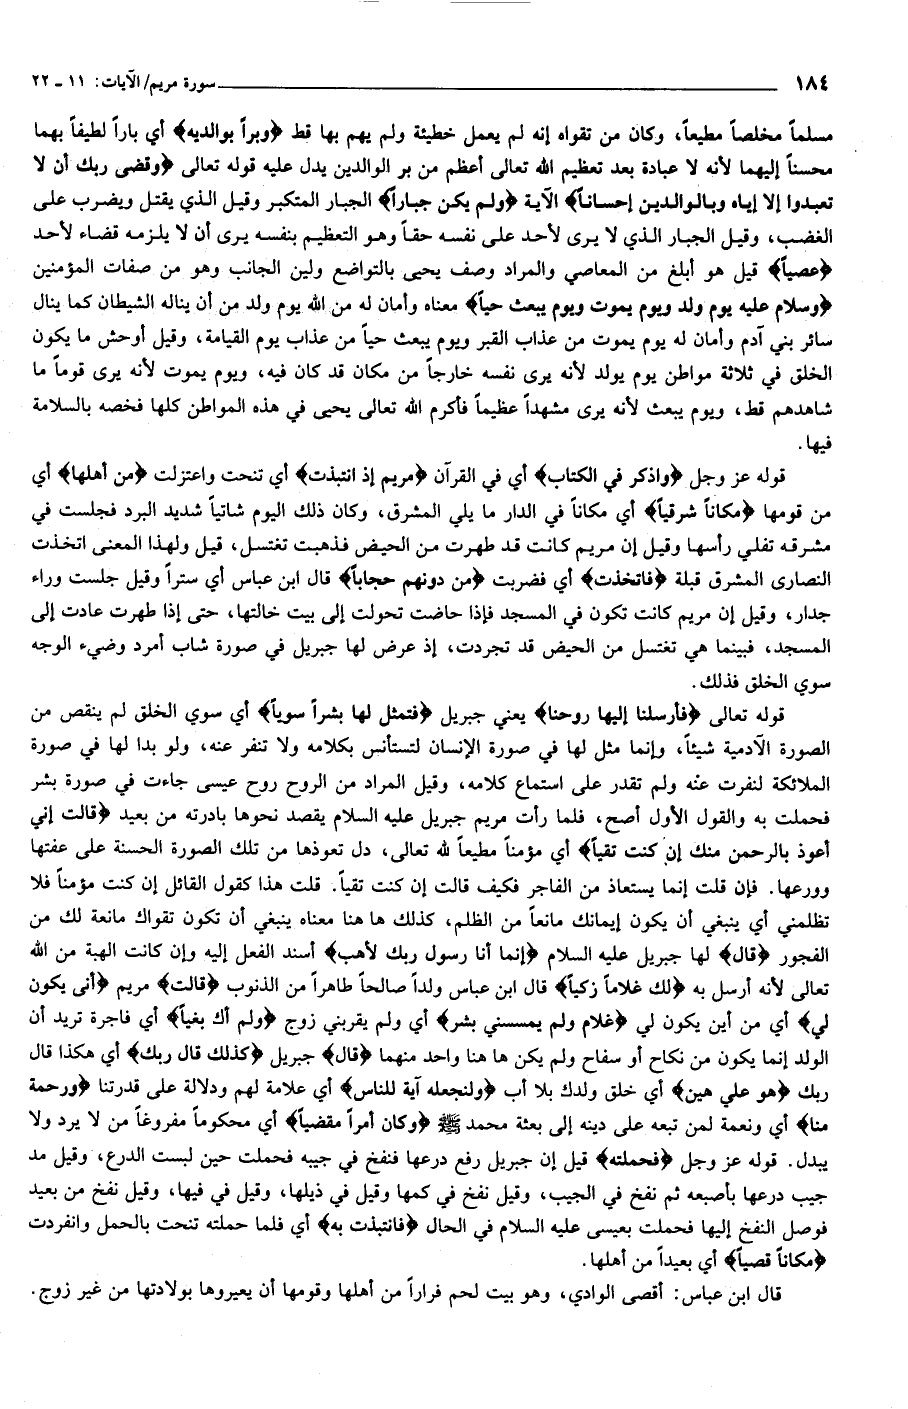 ١٨٤ سورة مريم/ الآيات: ١١ ـ ٢٢
مسلماً مخلصاً مطيعاً، وكان من تقواه إنه لم يعمل خطيئة ولم يهم بها قط ﴿وبراً بوالديه﴾ أي باراً لطيفاً بهما
محسناً إليهما لأنه لا عبادة بعد تعظيم الله تعالى أعظم من بر الوالدين يدل عليه قوله تعالى ﴿وقضى ربك أن لا
تعبدوا إلا إياه وبالوالدين إحساناً﴾ الآية ﴿ولم يكن جباراً﴾ الجبار المتكبر وقيل الذي يقتل ويضرب على
الغضب، وقيل الجبار الذي لا يرى لأحد على نفسه حقاً وهو التعظيم بنفسه يرى أن لا يلزمه قضاء لأحد
﴿عصياً﴾ قيل هو أبلغ من المعاصي والمراد وصف يحيى بالتواضع ولين الجانب وهو من صفات المؤمنين
﴿وسلام عليه يوم ولد ويوم يموت ويوم يبعث حياً﴾ معناه وأمان له من الله يوم ولد من أن يناله الشيطان كما ينال
سائر بني آدم وأمان له يوم يموت من عذاب القبر ويوم يبعث حياً من عذاب يوم القيامة، وقيل أوحش ما يكون
الخلق في ثلاثة مواطن يوم يولد لأنه يرى نفسه خارجاً من مكان قد كان فيه، ويوم يموت لأنه يرى قوماً ما
شاهدهم قط، ويوم يبعث لأنه يرى مشهداً عظيماً فأكرم الله تعالى يحيى في هذه المواطن كلها فخصه بالسلامة
فيها.
قوله عز وجل ﴿واذكر في الكتاب﴾ أي في القرآن ﴿مريم إذ انتبذت﴾ أي تنحت واعتزلت ﴿من أهلها﴾ أي
من قومها ﴿مكاناً شرقياً﴾ أي مكاناً في الدار ما يلي المشرق، وكان ذلك اليوم شاتياً شديد البرد فجلست في
مشرقه تفلي رأسها وقيل إن مريم كانت قد طهرت من الحيض فذهبت تغتسل، قيل ولهذا المعنى اتخذت
النصارى المشرق قبلة ﴿فاتخذت﴾ أي فضربت ﴿من دونهم حجاباً﴾ قال ابن عباس أي ستراً وقيل جلست وراء
جدار، وقيل إن مريم كانت تكون في المسجد فإذا حاضت تحولت إلى بيت خالتها، حتى إذا طهرت عادت إلى
المسجد، فبينما هي تغتسل من الحيض قد تجردت، إذ عرض لها جبريل في صورة شاب أمرد وضيء الوجه
سوي الخلق فذلك.
قوله تعالى ﴿فأرسلنا إليها روحنا﴾ يعني جبريل ﴿فتمثل لها بشراً سوياً﴾ أي سوي الخلق لم ينقص من
الصورة الآدمية شيئاً، وإنما مثل لها في صورة الإنسان لتستأنس بكلامه ولا تنفر عنه، ولو بدا لها في صورة
الملائكة لنفرت عنه ولم تقدر على استماع كلامه، وقيل المراد من الروح روح عيسى جاءت في صورة بشر
فحملت به والقول الأول أصح، فلما رأت مريم جبريل عليه السلام يقصد نحوها بادرته من بعيد ﴿قالت إني
أعوذ بالرحمن منك إن كنت تقياً﴾ أي مؤمناً مطيعاً لله تعالى، دل تعوذها من تلك الصورة الحسنة على عفتها
وورعها. فإن قلت إنما يستعاذ من الفاجر فكيف قالت إن كنت تقياً. قلت هذا كقول القائل إن كنت مؤمناً فلا
تظلمني أي ينبغي أن يكون إيمانك مانعاً من الظلم، كذلك ها هنا معناه ينبغي أن تكون تقواك مانعة لك من
الفجور ﴿قال﴾ لها جبريل عليه السلام ﴿إنما أنا رسول ربك لأهب﴾ أسند الفعل إليه وإن كانت الهبة من الله
تعالى لأنه أرسل به ﴿لك غلاماً زكياً﴾ قال ابن عباس ولداً صالحاً طاهراً من الذنوب ﴿قالت﴾ مريم ﴿أنى يكون
لي﴾ أي من أين يكون لي ﴿غلام ولم يمسسني بشر﴾ أي ولم يقربني زوج ﴿ولم أك بغياً﴾ أي فاجرة تريد أن
الولد إنما يكون من نكاح أو سفاح ولم يكن ها هنا واحد منهما ﴿قال﴾ جبريل ﴿كذلك قال ربك﴾ أي هكذا قال
ربك ﴿هو علي هين﴾ أي خلق ولدك بلا أب ﴿ولنجعله آية للناس﴾ أي علامة لهم ودلالة على قدرتنا ﴿ورحمة
منا﴾ أي ونعمة لمن تبعه على دينه إلى بعثة محمد ﷺ ﴿وكان أمراً مقضياً﴾ أي محكوماً مفروغاً من لا يرد ولا
يبدل. قوله عز وجل ﴿فحملته﴾ قيل إن جبريل رفع درعها فنفخ في جيبه فحملت حين لبست الدرع، وقيل مد
جيب درعها بأصبعه ثم نفخ في الجيب، وقيل نفخ في كمها وقيل في ذيلها، وقيل في فيها، وقيل نفخ من بعيد
فوصل النفخ إليها فحملت بعيسى عليه السلام في الحال ﴿فانتبذت به﴾ أي فلما حملته تنحت بالحمل وانفردت
﴿مكاناً قصياً﴾ أي بعيداً من أهلها.
قال ابن عباس: أقصى الوادي، وهو بيت لحم فراراً من أهلها وقومها أن يعيروها بولادتها من غير زوج.